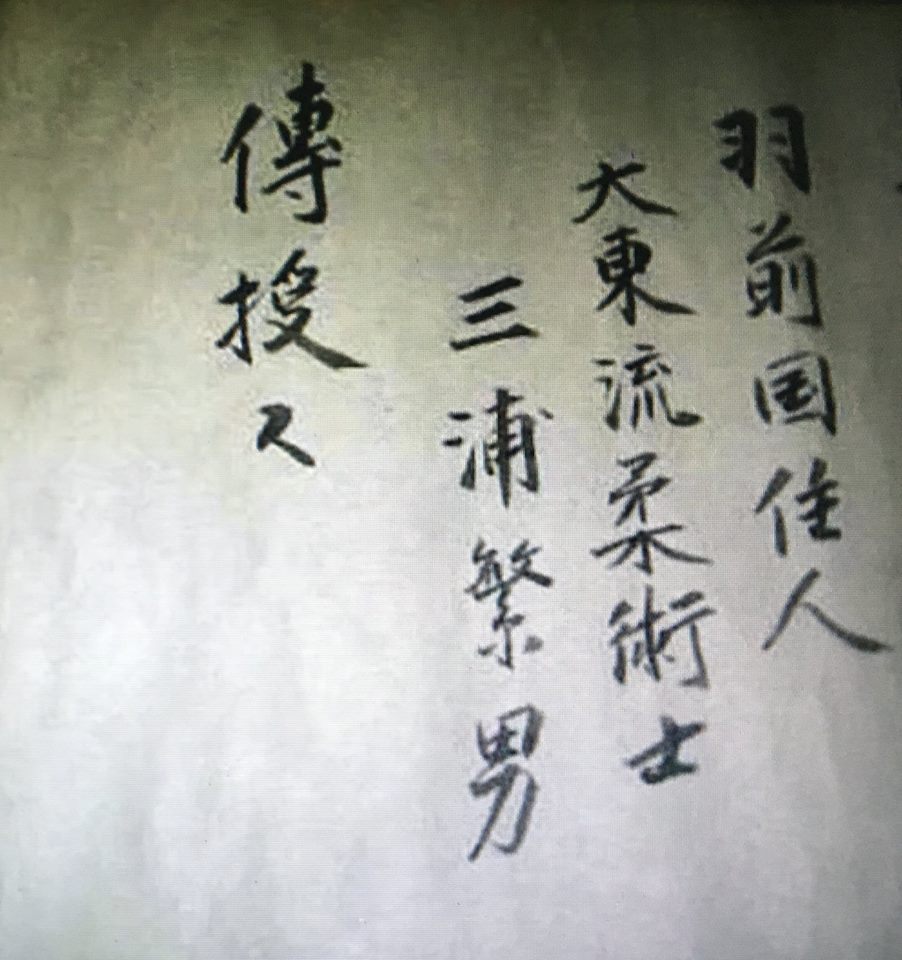 羽前国住人
大東流柔術士
三浦繁男
傳授之